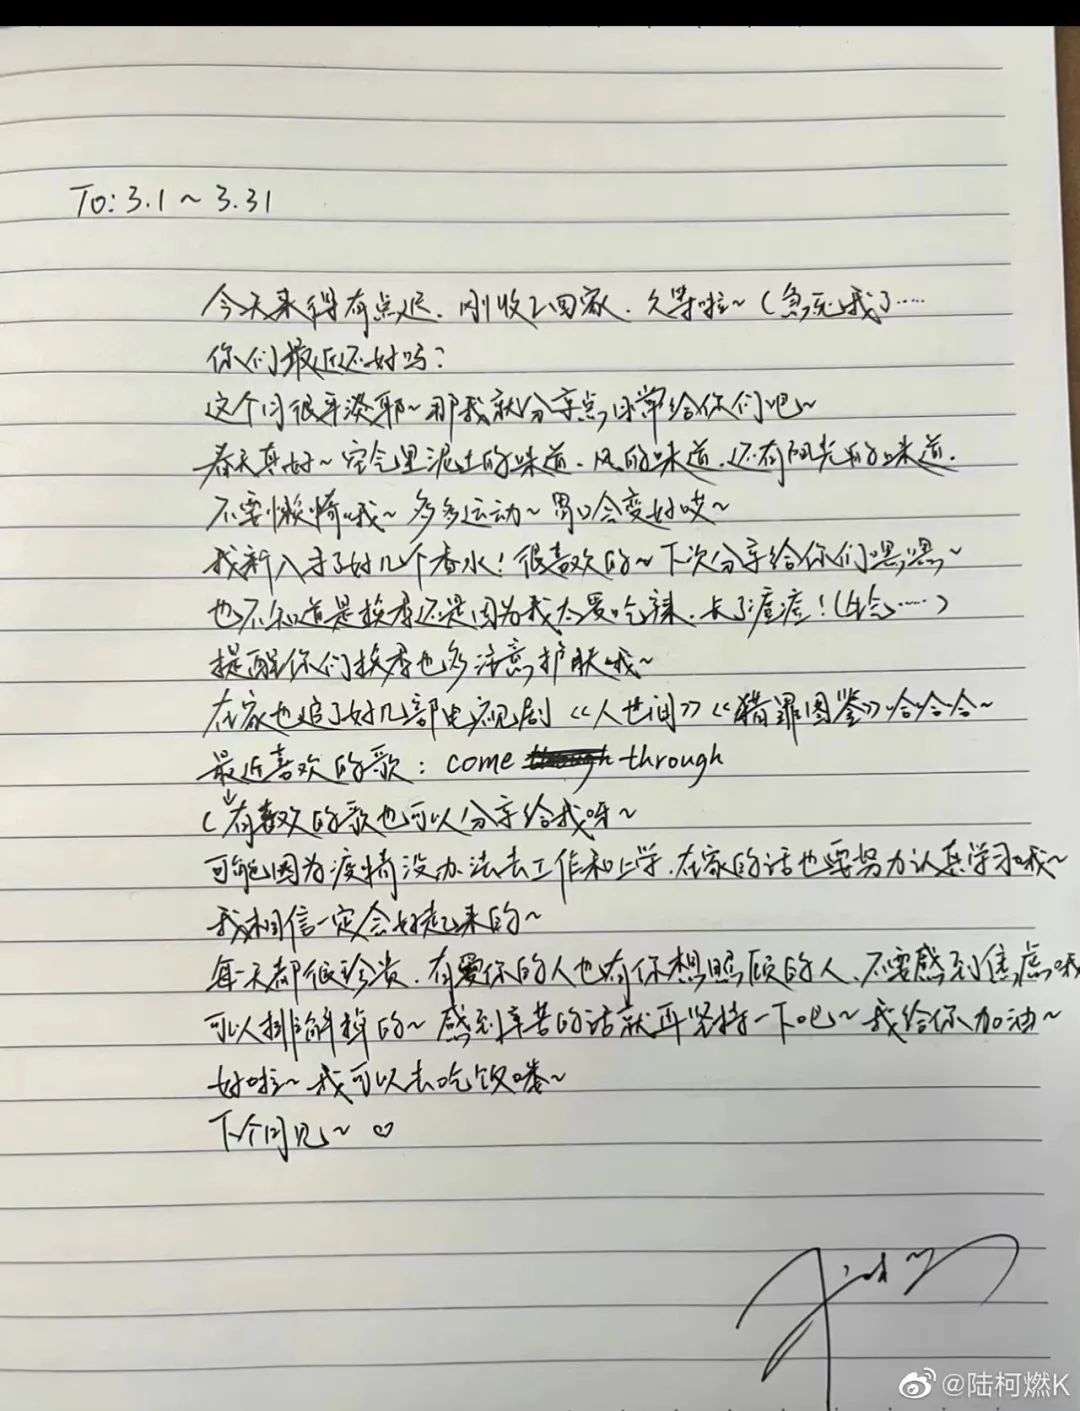 To: 3.1~3.31
今天来得有点迟、刚收工回家、久等啦~(急死我了……
你们最近还好吗?
这个月很平淡耶~那我就分享点日常给你们吧~
春天真好~空气里泥土的味道、风的味道、还有阳光的味道.
不要懒惰哦~多多运动~胃口会变好哎~
我新入手了好几个香水!很喜欢的~下次分享给你们嘿嘿~
也不知道是换季还是因为我太爱吃辣、长了痘痘!(……)
提醒你们换季也多注意护肤哦~
在家也追了好几部电视剧《人世间》《猎罪图鉴》哈哈哈~
最近喜欢的歌: come through
(有喜欢的歌也可以分享给我呀~
可能因为疫情没办法去工作和上学、在家的话也要努力认真学习哦~
我相信一定会好起来的~
每天都很珍贵、有爱你的人也有你想照顾的人、不要感到焦虑哦
可以排解掉的~感到辛苦的话就再坚持一下吧~我给你加油~
好啦~我可以去吃饭喽~
下个月见~♡
@陆柯燃K